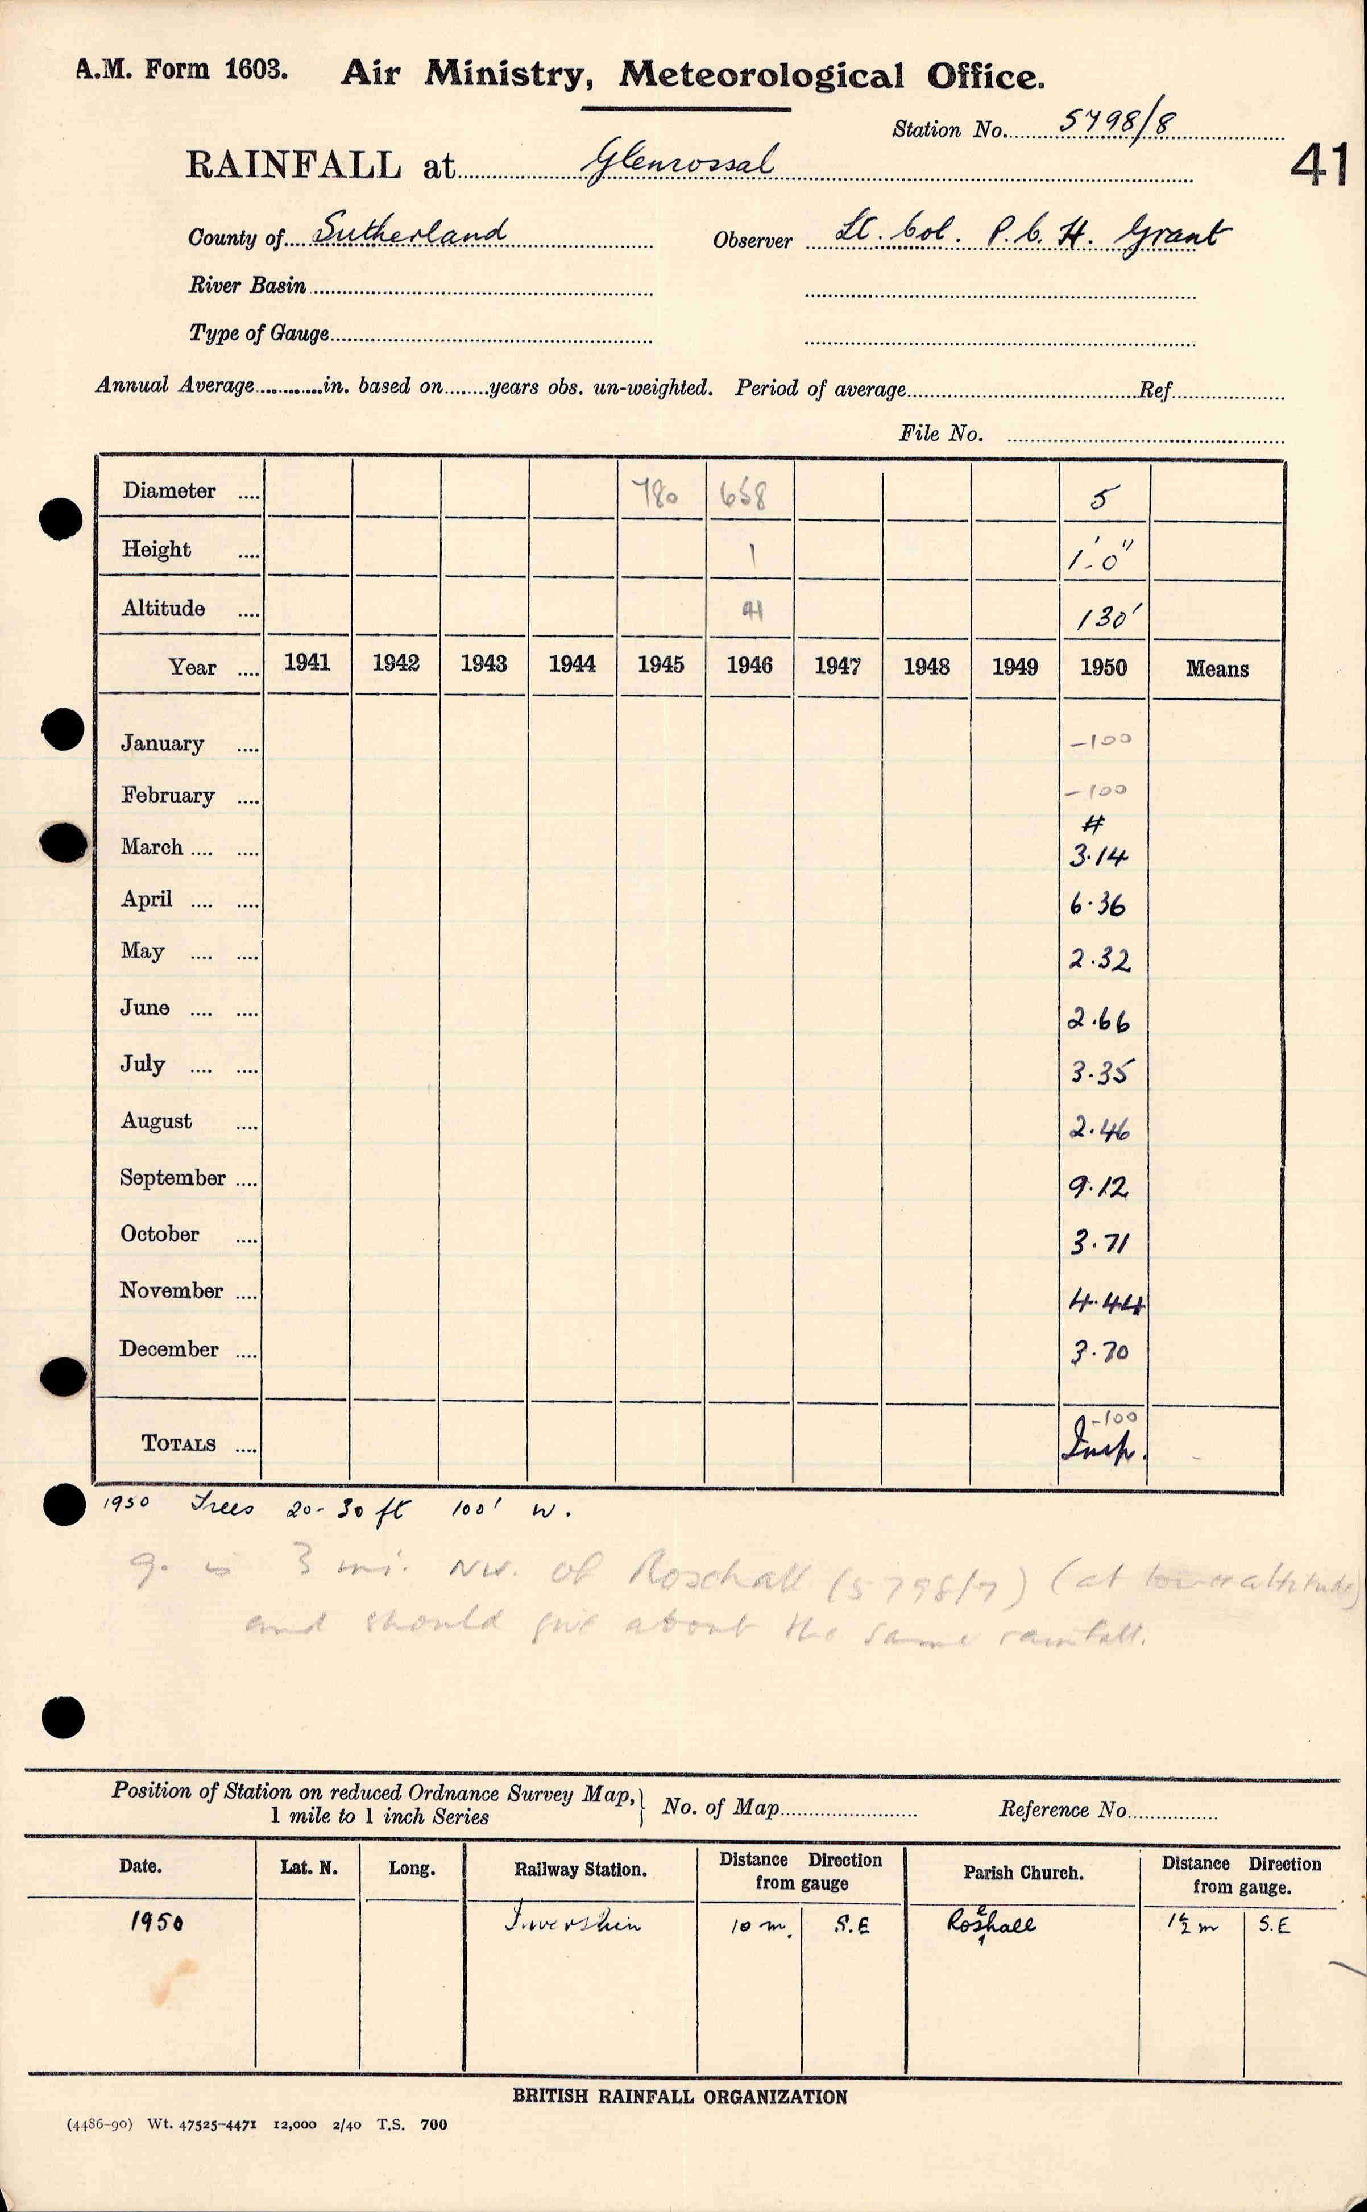 A.M. Form 1603. Air Ministry, Meteorological Office.
Station No. 5798/8
RAINFALL at Glenrossal
41
County of Sutherland Observer Lt. Col. P. C. H. Grant
River Basin
Type of Gauge
Annual Average in. based on years obs. un-weighted. Period of average Ref.
File No.
Diameter 780 658 5
Height 1 1'-0"
Altitude 41 130'
Year 1941 1942 1943 1944 1945 1946 1947 1948 1949 1950 Means
January -100
February -100
#
March 3.14
April 6.36
May 2.32
June 2.66
July 3.35
August 2.46
September 9.12
October 3.71
November 4.44
December 3.70
-100
TOTALS Insp.
1950 Trees 20-30 ft 100' W.
g. is 3 mi. NW. of Rosehall (5798/7) (at lower altitude)
and should give about the same rainfall.
Position of Station on reduced Ordnance Survey Map, } No. of Map Reference No.
1 mile to 1 inch Series
Date. Lat. N. Long. Railway Station. Distance Direction from gauge Parish Church. Distance Direction from gauge.
1950 Invershin 10 m. S.E Rosehall 1½ m S.E
BRITISH RAINFALL ORGANIZATION
(4486-90) Wt. 47525-4471 12,000 2/40 T.S. 700